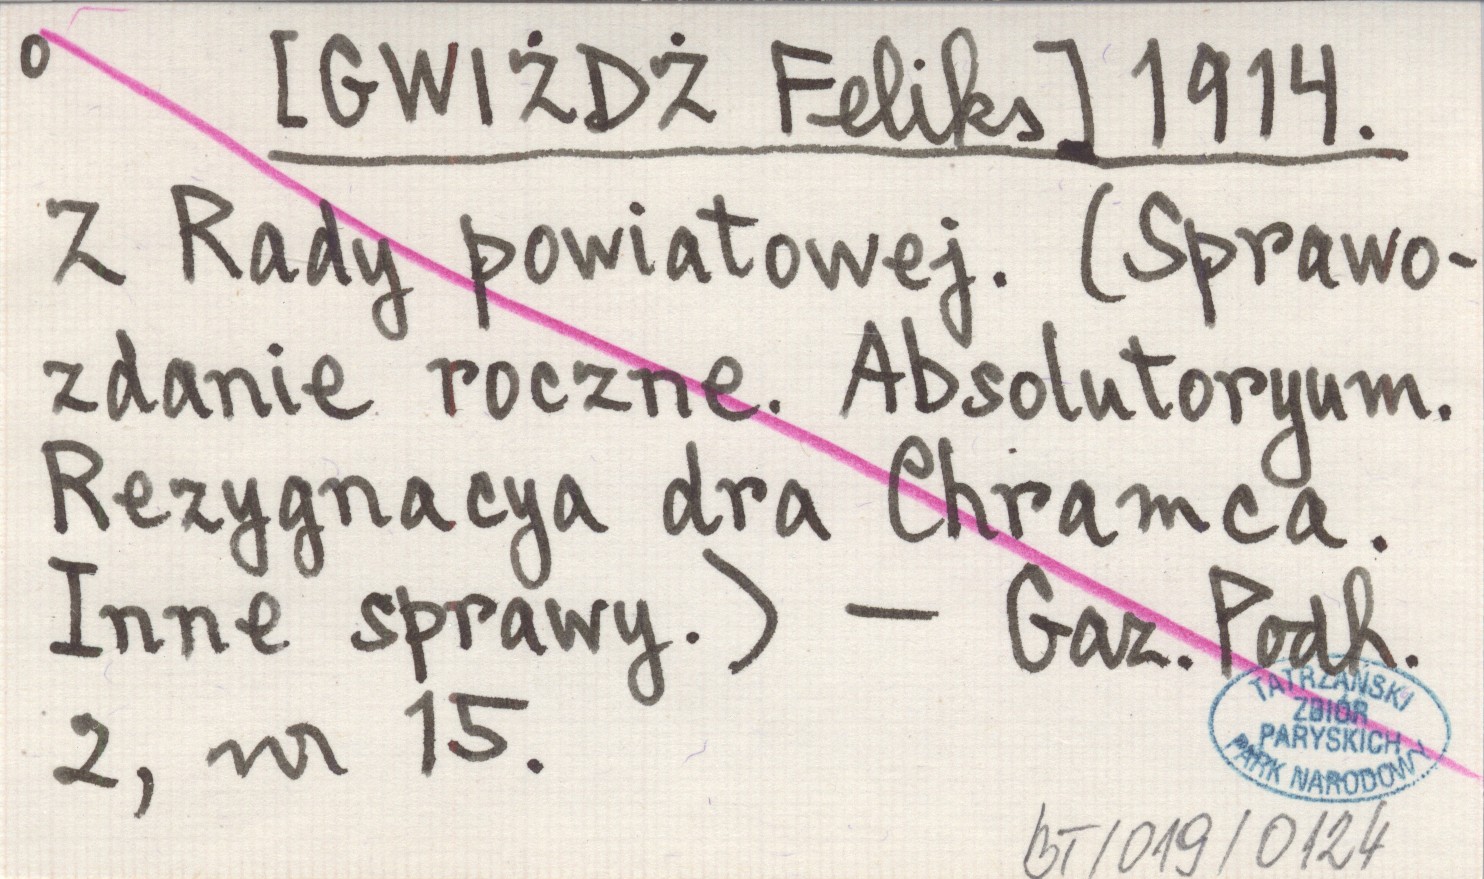 o [GWIŻDŻ Feliks] 1914.
Z Rady powiatowej. (Sprawo-
zdanie roczne. Absolutoryum.
Rezygnacya dra Chramca.
Inne sprawy.) — Gaz. Podh.
2, nr 15.
TATRZAŃSKI
ZBIÓR
PARYSKICH
PARK NARODOWY
BT/019/0124